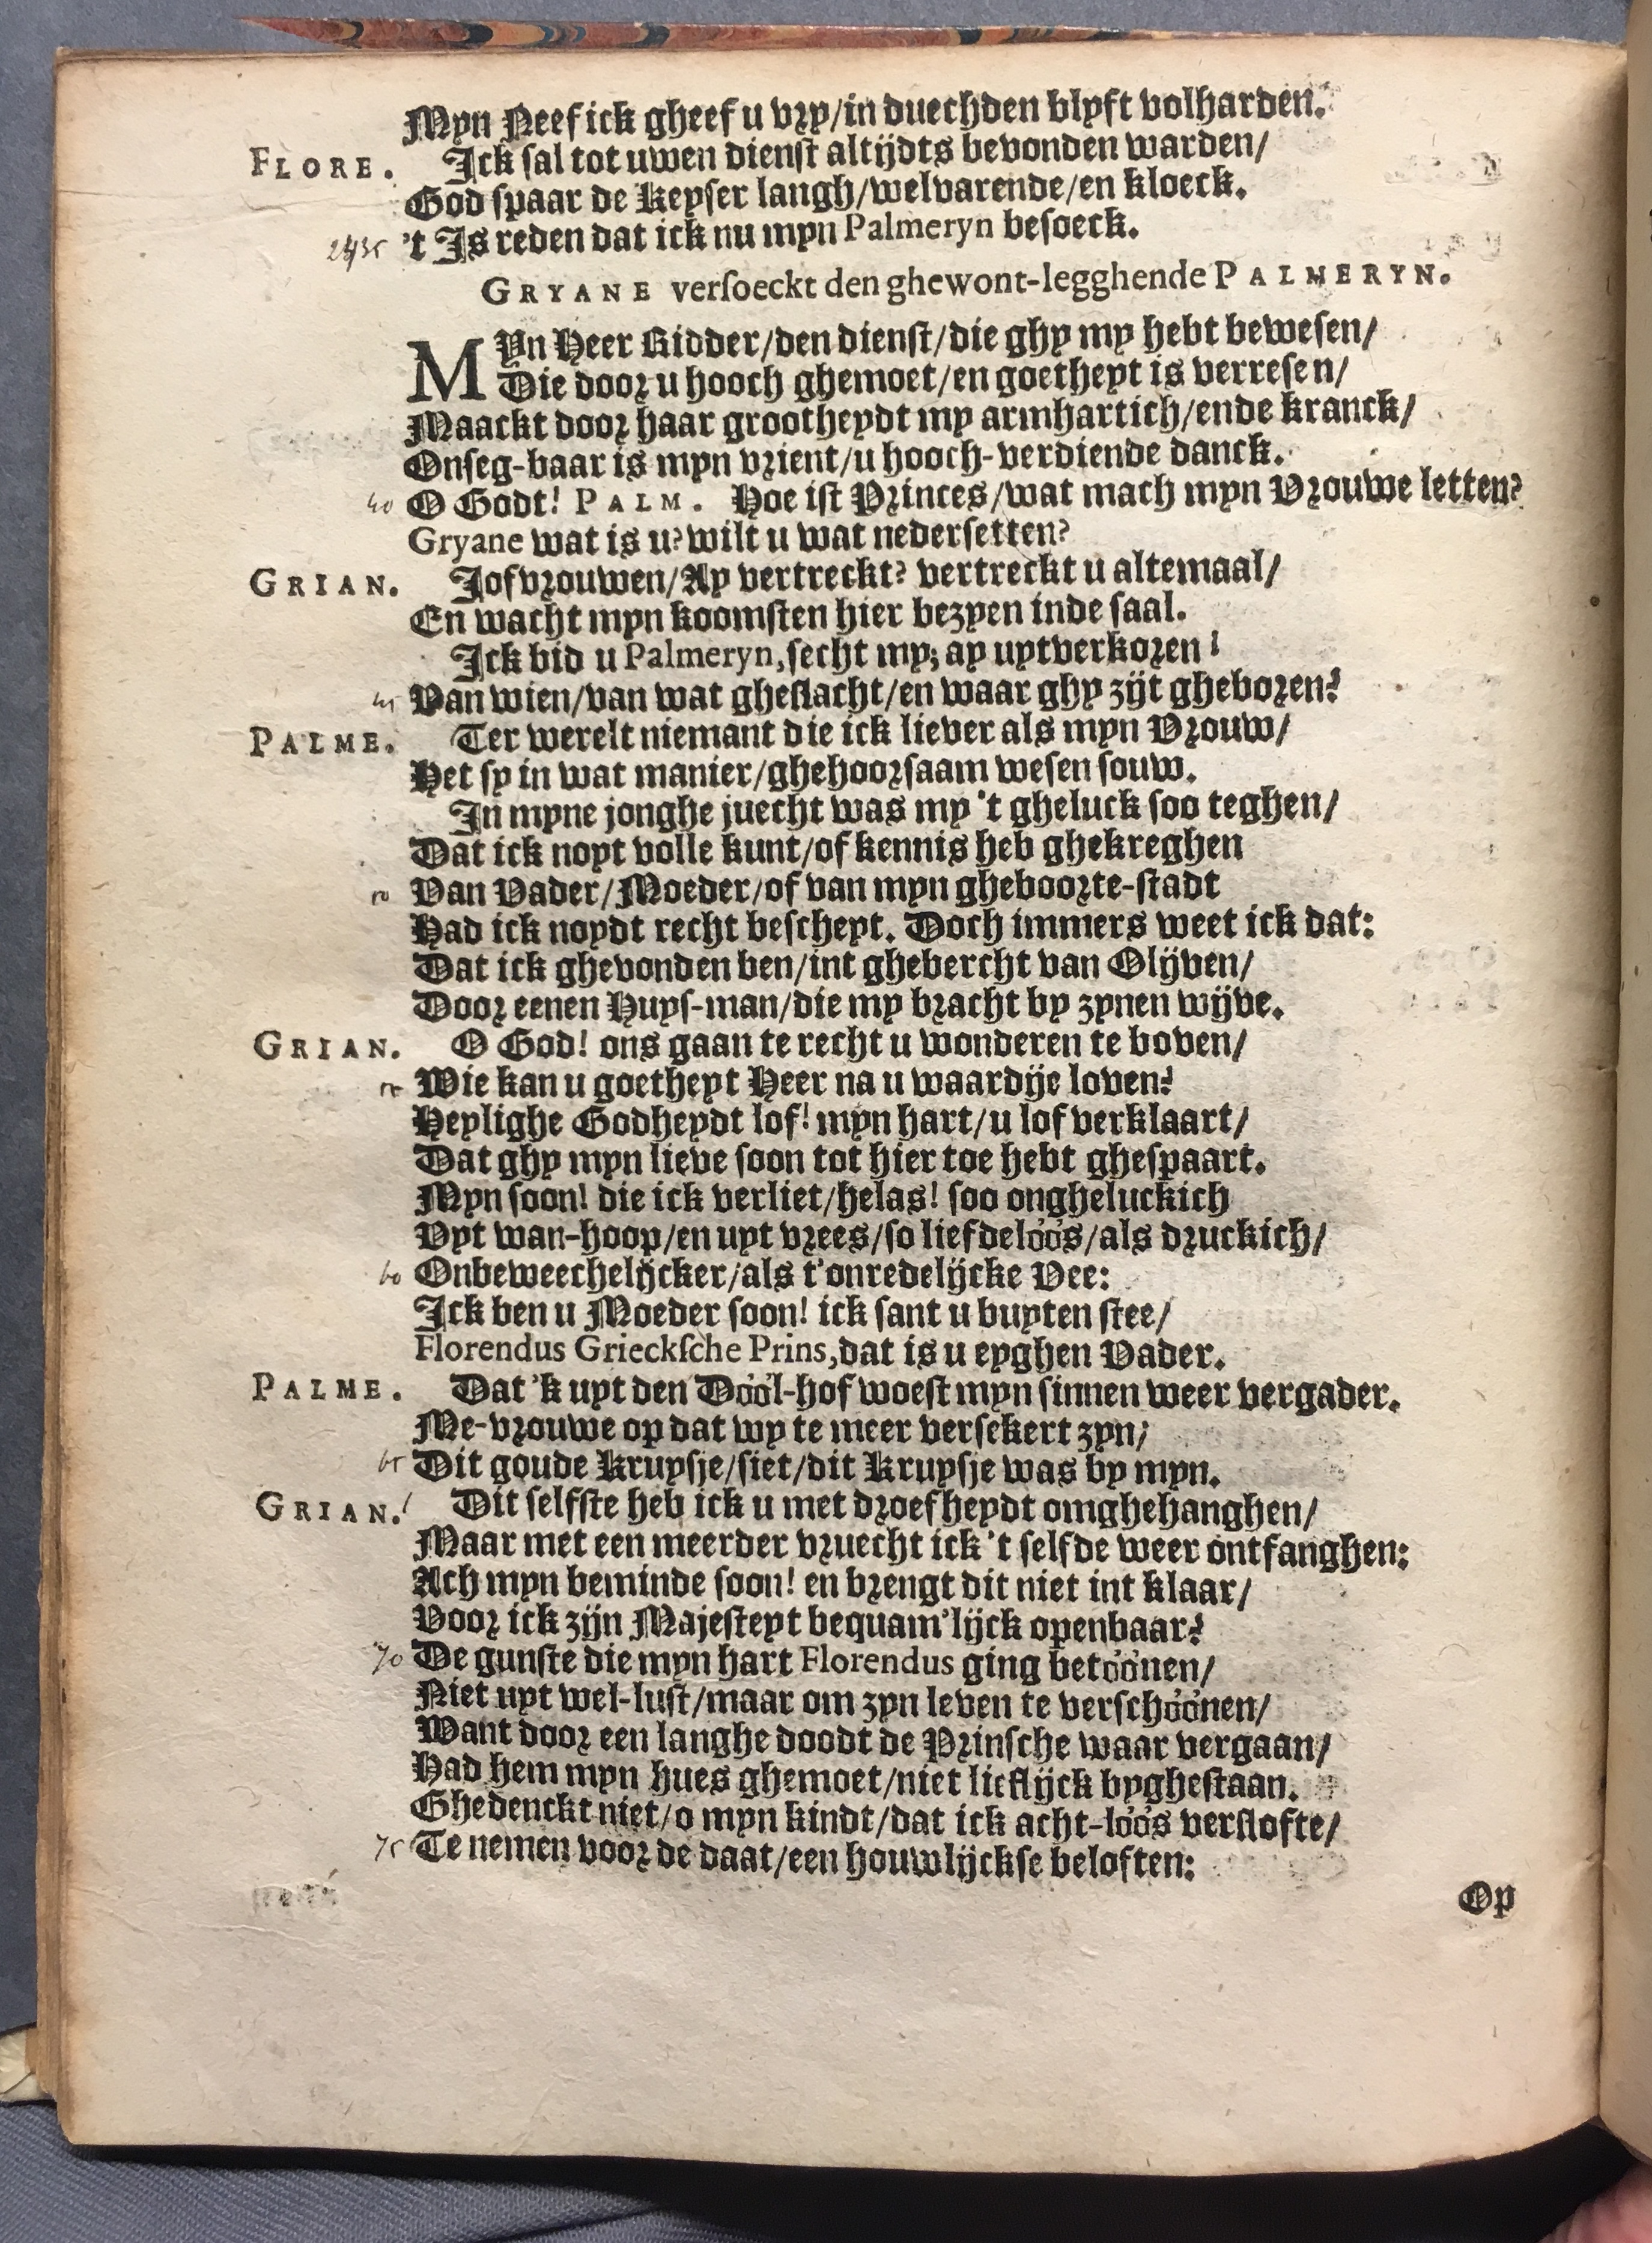 Myn Neef ick gheef u vry/in duechden blyft volharden.
FLORE. Ick sal tot uwen dienst altijdts bevonden warden/
God spaar de Keyser langh/welvarende/en kloeck.
2435 't Is reden dat ick nu myn Palmeryn besoeck.
GRYANE versoeckt den ghewont-legghende PALMERYN.
MYn Heer Ridder/den dienst/die ghy my hebt bewesen/
Die door u hooch ghemoet/en goetheyt is verresen/
Maackt door haar grootheydt my armhartich/ende kranck/
Onseg-baar is myn vrient/u hooch-verdiende danck.
40 O Godt! PALM. Hoe ist Princes/wat mach myn Vrouwe letten?
Gryane wat is u? wilt u wat nedersetten?
GRIAN. Jofvrouwen/Ay vertreckt? vertreckt u altemaal/
En wacht myn koomsten hier bezyen inde saal.
Ick bid u Palmeryn, secht my; ay uytverkoren!
45 Van wien/van wat gheslacht/en waar ghy zijt gheboren?
PALME. Ter werelt niemant die ick liever als myn Vrouw/
Het sy in wat manier/ghehoorsaam wesen souw.
In myne jonghe juecht was my 't gheluck soo teghen/
Dat ick noyt volle kunt/of kennis heb ghekreghen
50 Van Vader/Moeder/of van myn gheboorte-stadt
Had ick noydt recht bescheyt. Doch immers weet ick dat:
Dat ick ghevonden ben/int ghebercht van Olijven/
Door eenen Huys-man/die my bracht by zynen wijve.
GRIAN. O God! ons gaan te recht u wonderen te boven/
55 Wie kan u goetheyt Heer na u waardije loven?
Heylighe Godheydt lof! myn hart/u lof verklaart/
Dat ghy myn lieve soon tot hier toe hebt ghespaart.
Myn soon! die ick verliet/helas! soo ongheluckich
Vyt wan-hoop/en uyt vrees/so liefdelóós/als druckich/
60 Onbeweechelijcker/als t'onredelijcke Vee:
Ick ben u Moeder soon! ick sant u buyten stee/
Florendus Grieckſche Prins, dat is u eyghen Vader.
PALME. Dat 'k uyt den Dóól-hof woest myn sinnen weer vergader.
Me-vrouwe op dat wy te meer versekert zyn;
65 Dit goude Kruysje/siet/dit Kruysje was by myn.
GRIAN. Dit selfste heb ick u met droefheydt omghehanghen/
Maar met een meerder vruecht ick 't selfde weer ontfanghen:
Ach myn beminde soon! en brengt dit niet int klaar/
Voor ick zijn Majesteyt bequam'lijck openbaar?
70 De gunste die myn hart Florendus ging betóónen/
Niet uyt wel-lust/maar om zyn leven te verschóónen/
Want door een langhe doodt de Prinsche waar vergaan/
Had hem myn hues ghemoet/niet lieflijck byghestaan.
Ghedenckt niet/o myn kindt/dat ick acht-lóós verslofte/
75 Te nemen voor de daat/een houwlijckse beloften:
Op